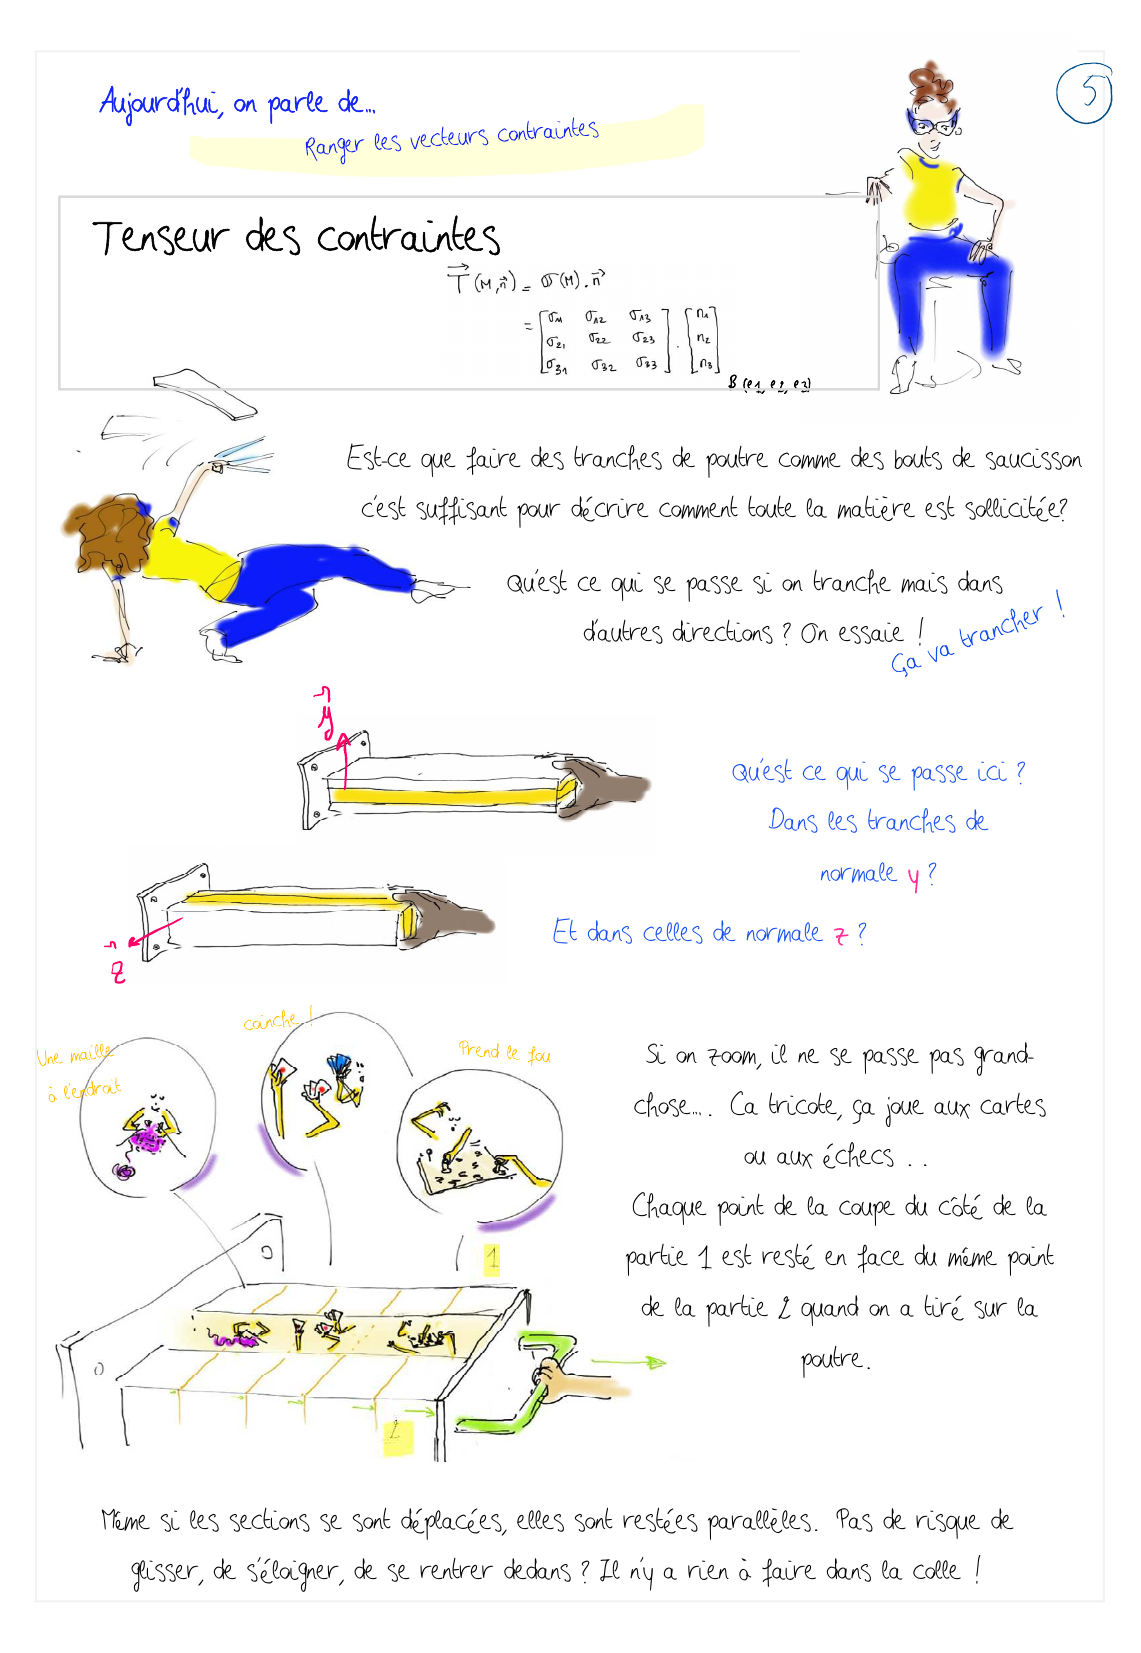 5
Aujourd'hui, on parle de...
Ranger les vecteurs contraintes
Tenseur des contraintes
T⃗ (M,n⃗) = σ(M) . n⃗
= [σ11 σ12 σ13] . [n1]
[σ21 σ22 σ23] [n2]
[σ31 σ32 σ33] [n3]
B (e1, e2, e3)
Est-ce que faire des tranches de poutre comme des bouts de saucisson
c'est suffisant pour décrire comment toute la matière est sollicitée?
Qu'est ce qui se passe si on tranche mais dans
d'autres directions ? On essaie !
Ça va trancher !
y⃗
Qu'est ce qui se passe ici ?
Dans les tranches de
normale y ?
z⃗
Et dans celles de normale z ?
Une maille
à l'endroit
coinche !
Prend le fou
Si on zoom, il ne se passe pas grand-
chose.... Ca tricote, ça joue aux cartes
ou aux échecs . .
Chaque point de la coupe du côté de la
partie 1 est resté en face du même point
de la partie 2 quand on a tiré sur la
poutre.
1
2
Même si les sections se sont déplacées, elles sont restées parallèles. Pas de risque de
glisser, de s'éloigner, de se rentrer dedans ? Il n'y a rien à faire dans la colle !